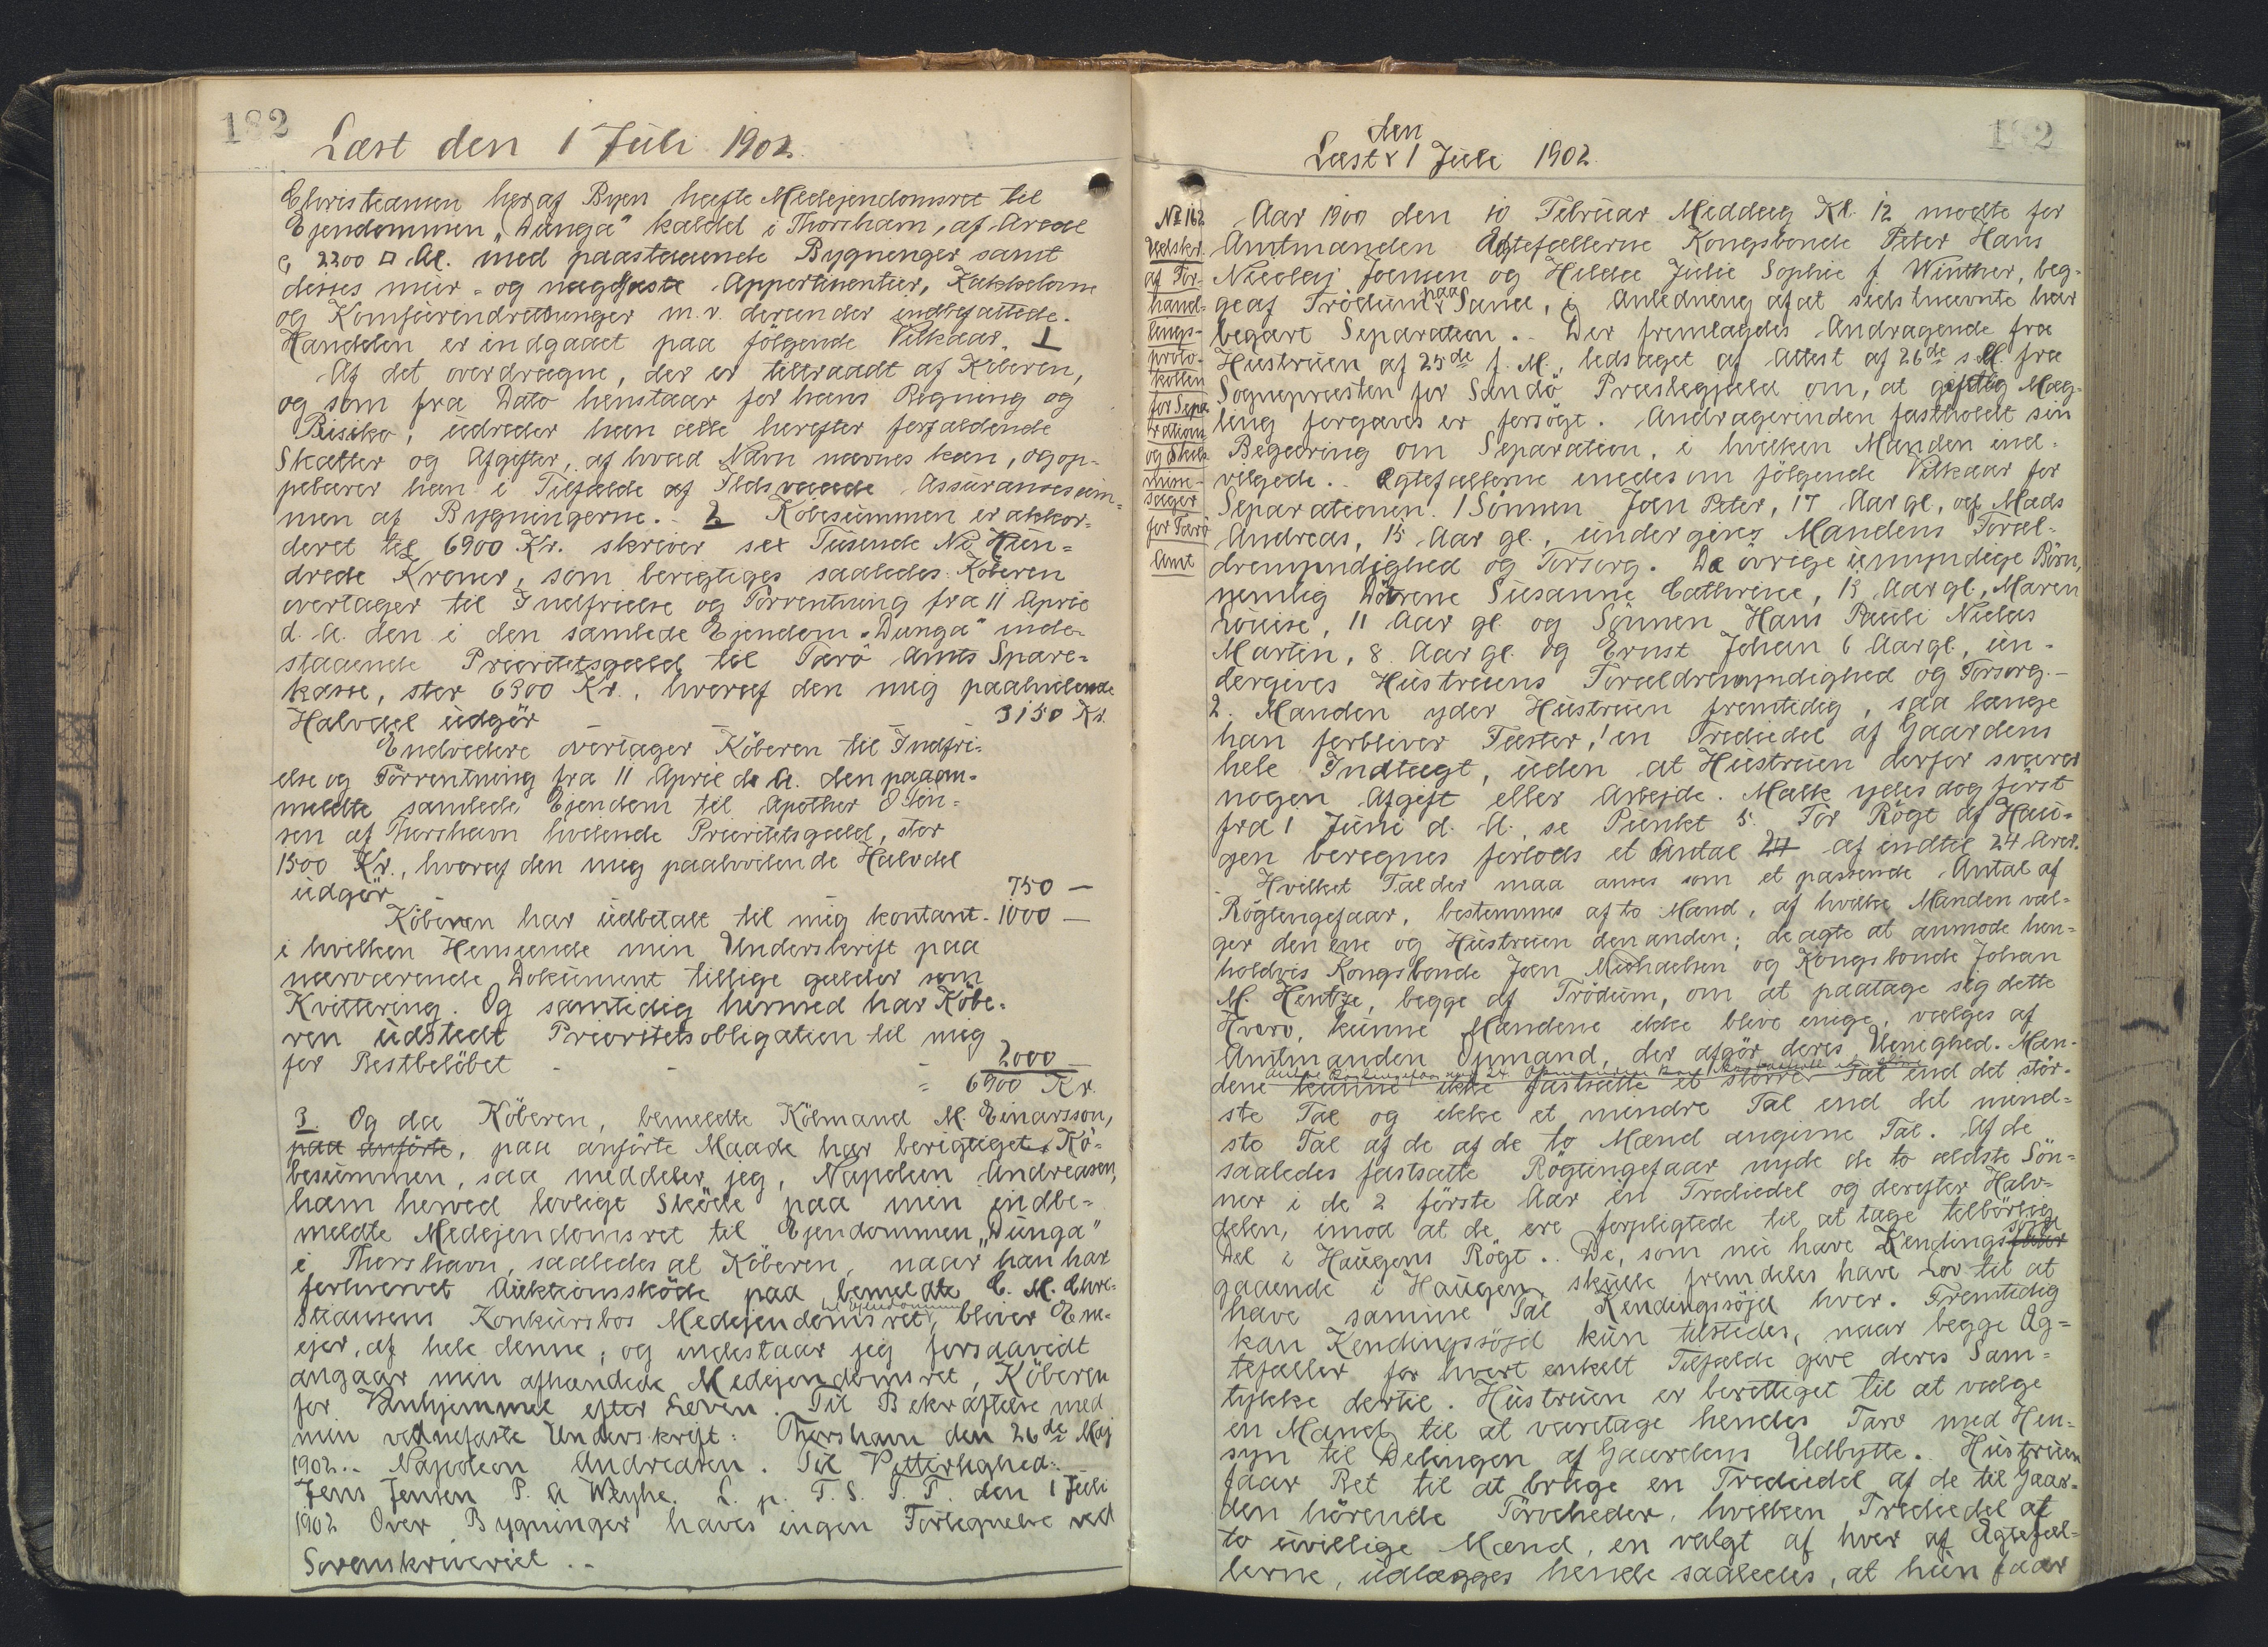 182
Læst den 1 Juli 1902.
Christiansen her af Byen hafte Medejendomsret til
Ejendommen "Dunga" kaldet i Thorshavn, af Areal
c. 2200 □ Al. med paastaaende Bygninger samt
disses mur- og nagelfaste Appertinentier, Kakkelovne
og Komfurindretninger m. v. derunder indbefattede.
Handelen er indgaaet paa følgende Vilkaar. 1
Af det overdragne, der er tiltraadt af Köberen,
og som fra Dato henstaar for hans Regning og
Risiko, udreder han alle herefter forfaldende
Skatter og Afgifter, af hvad Navn nævnes kan, og op-
pebærer han i Tilfælde af Ildsvaade Assurancesum-
men af Bygningerne. 2 Köbesummen er akkor-
deret til 6900 Kr. skriver sex Tusende Ni Hun-
drede Kroner, som berigtiges saaledes: Köberen
overtager til Indfrielse og Forrentning fra 11 April
d. A. den i den samlede Ejendom "Dunga" inde-
staaende Prioritetsgæld til Færö Amts Spare-
kasse, stor 6300 Kr., hvoraf den mig paahvilende
Halvdel udgör - - - 3150 Kr.
Endvidere overtager Köberen til Indfri-
else og Forrentning fra 11 April d. A. den paa om-
meldte samlede Ejendom til Apotheker O. Fin-
sen af Thorshavn hvilende Prioritetsgæld, stor
1500 Kr., hvoraf den mig paahvilende Halvdel
udgör - 750 -
Köberen har udbetalt til mig kontant - 1000 -
i hvilken Henseende min Underskrift paa
nærværende Dokument tillige gælder som
Kvittering. Og samtidig hermed har Köbe-
ren udstedt Prioritetsobligation til mig
for Restbelöbet - - - 2000
= 6900 Kr.
3. Og da Köberen, bemeldte Köbmand M. Einarsson,
paa anförte, paa anförte Maade har berigtiget Kö-
besummen, saa meddeler jeg, Napoleon Andreasen,
ham herved lovligt Sköde paa min endbe-
meldte Medejendomsret til Ejendommen "Dunga"
i Thorshavn, saaledes at Köberen, naar han har
forhvervet Auktionssköde paa bemeldte C. M. Chri-
stiansens Konkursbos Medejendomsret til Ejendommen, bliver Ene-
ejer af hele denne; og indestaar jeg forsaavidt
angaar min afhændede Medejendomsret, Köberen
for Vanhjemmel efter Loven. Til Bekræftelse med
min vidnefaste Underskrift: Thorshavn den 26de Maj
1902.. Napoleon Andreasen. Til Vitterlighed:
Jens Jensen P. A Weyhe. L. p. F. S. T. T. den 1 Juli
1902 Over Bygninger haves ingen Fortegnelse ved
Sorenskriveriet..
182
Læst den 1 Juli 1902.
No 162
Udskr.
af For-
hand-
lings-
proto-
kollen
for Sepa-
rations
og Skils-
misse-
sager
for Færö
Amt
Aar 1900 den 10 Februar Middag Kl. 12 mødte for
Amtmanden Ægtefællerne Kongsbonde Peter Hans
Nicolaj Joensen og Hilda Julie Sophie f. Winther, beg-
ge af Trödum paa Sand, i Anledning af at sidstnævnte har
begært Separation.. Der fremlagdes Andragende fra
Hustruen af 25de f. M., ledsaget af Attest af 26de s. M. fra
Sognepræsten for Sandö Præstegjæld om, at gejstlig Mæg-
ling forgæves er forsögt. Andragerinden fastholdt sin
Begæring om Separation, i hvilken Manden ind-
vilgede.. Ægtefællerne enedes om følgende Vilkaar for
Separationen. 1 Sönnen Joen Peter, 17 Aar gl., og Mads
Andreas, 15 Aar gl., undergives Mandens Foræl-
dremyndighed og Forsorg. De övrige umyndige Börn,
nemlig Dötrene Susanne Cathrine, 13 Aar gl., Maren
Louise, 11 Aar gl. og Sönnen Hans Pauli Niclas
Martin, 8 Aar gl. og Ernst Johan 6 Aar gl., un-
dergives Hustruens Forældremyndighed og Forsorg.-
2. Manden yder Hustruen fremtidig, saa længe
han forbliver Fæster, en Trediedel af Gaardens
hele Indtægt, uden at Hustruen derfor svarer
nogen Afgift eller Arbejde. Mælk ydes dog først
fra 1 Juni d. A., se Punkt 5. For Rögt af Hau-
gen beregnes forlods et Antal 24 af indtil 24 Aver.
Hvilket Tal der maa anses som et passende Antal af
Rögtingsfaar, bestemmes af to Mænd, af hvilke Manden væl-
ger den ene og Hustruen den anden; de agte at anmode hen-
holdvis Kongsbonde Joen Michaelsen og Kongsbonde Johan
M. Hentze, begge af Trödum, om at paatage sig dette
Hverv, kunne Mændene ikke blive enige, vælges af
Amtmanden Opmand, der afgör deres Uenighed. Mæn-
dene kunne ikke fastsætte et större Tal end det stör-
ste Tal og ikke et mindre Tal end det mind-
ste Tal af de af de to Mænd angivne Tal. Af de
saaledes fastsatte Rögtingsfaar nyde de to ældste Sön-
ner i de 2 förste Aar en Trediedel og derefter Halv-
delen, imod at de ere forpligtede til at tage tilbörlig
Del i Haugens Rögt.. De, som nu have Kendings söjd
gaaende i Haugen, skulle fremdeles have Lov til at
have samme Tal Kendingssöjd hver. Fremtidig
kan Kendingssöjd kun tilstedes, naar begge Æg-
tefæller for hvert enkelt Tilfælde give deres Sam-
tykke dertil. Hustruen er berettiget til at vælge
en Mand til at varetage hendes Tarv med Hen-
syn til Delingen af Gaardens Udbytte. Hustruen
faar Ret til at bruge en Trediedel af de til Gaar-
den hörende Törveheder, hvilken Trediedel af
to uvillige Mænd, en valgt af hver af Ægtefæl-
lerne, udlægges hende saaledes, at hun faar